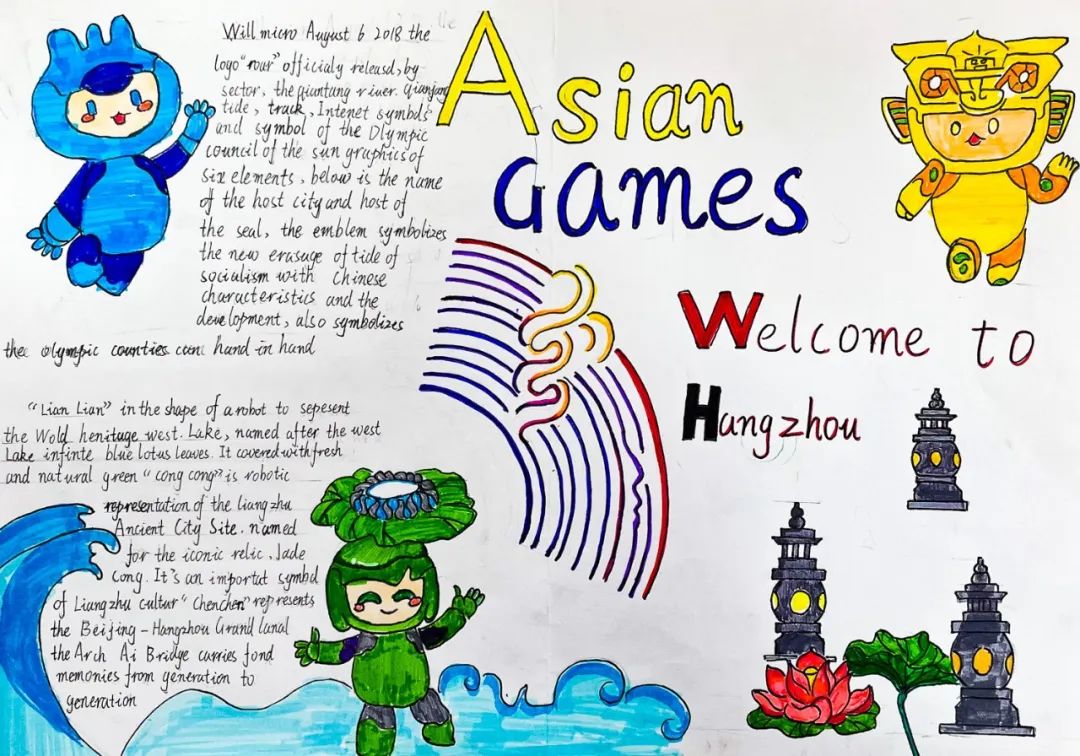 Asian
Games
Welcome to
Hangzhou
Will micro August 6 2018 the
logo "rour" officialy releasd, by
sector, the qiantang river. qianjang
tide, track, Intenet symbols
and symbol of the Olympic
council of the sun graphics of
six elements, below is the name
of the host city and host of
the seal, the emblem symbolizes
the new erasage of tide of
socialism with Chinese
characteristics and the
development, also symbolizes
the olympic counties hand in hand
"Lian Lian" in the shape of a robot to sepesent
the Wold henitage west. Lake, named after the west
Lake infinte blue lotus leaves. It covered with fresh
and natural green "cong cong" is robotic
representation of the Liangzhu
Ancient City Site. named
for the iconic relic, Jade
Cong. It's an importat symbol
of Liangzhu cultur "Chenchen" represents
the Beijing-Hangzhou Grand Canal
the Arch Ai Bridge carries fond
memories from generation to
generation